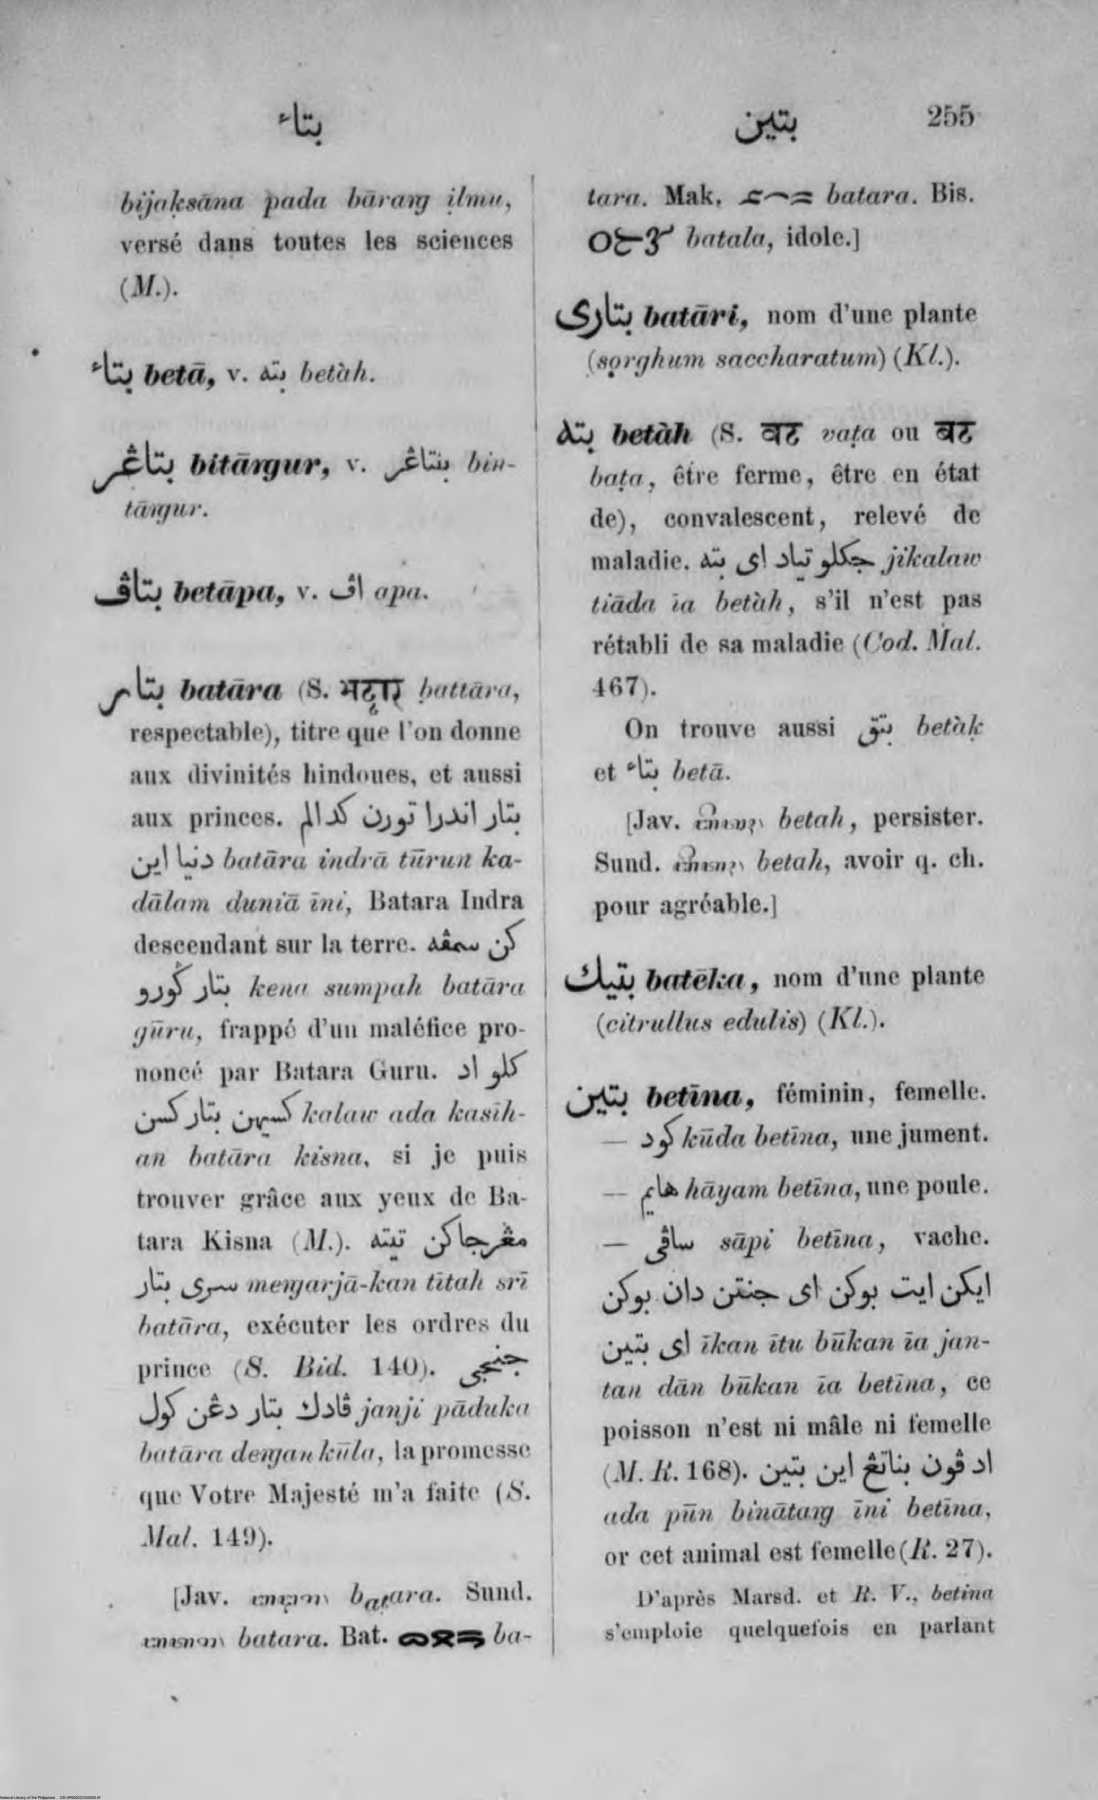 بتاء
بتين 255
bijaḳsāna pada bāraṅg ịlmu,
versé dans toutes les sciences
(M.).
بتاء betā, v. بته betàh.
بتاڠر bitāṅgur, v. بنتاڠر bin-
tāṅgur.
بتاڤ betāpa, v. اڤ apa.
بتار batāra (S. भट्टार ḅattāra,
respectable), titre que l'on donne
aux divinités hindoues, et aussi
aux princes. بتار اندرا تورن كدالم
دنيا اين batāra indrā tūrun ka-
dālam duniā īni, Batara Indra
descendant sur la terre. كن سمڤه
بتار ݢورو kena sumpah batāra
gūru, frappé d'un maléfice pro-
noncé par Batara Guru. كلو اد
كسيهن بتار كسن kalaw ada kasīh-
an batāra kisna, si je puis
trouver grâce aux yeux de Ba-
tara Kisna (M.). مڠرجاكن تيته
سرى بتار meṅgarjā-kan tītah srī
batāra, exécuter les ordres du
prince (S. Bid. 140). جنجى
ڤادك بتار دڠن كول janji pāduka
batāra deṅgan kūla, la promesse
que Votre Majesté m'a faite (S.
Mal. 149).
[Jav. baṭara. Sund.
batara. Bat. ba-
tara. Mak. batara. Bis.
batala, idole.]
بتارى batāri, nom d'une plante
(sọrghum saccharatum) (Kl.).
بته betàh (S. वट vaṭa ou बट
baṭa, être ferme, être en état
de), convalescent, relevé de
maladie. جكلو تياد اى بته jikalaw
tiāda īa betàh, s'il n'est pas
rétabli de sa maladie (Cod. Mal.
467).
On trouve aussi بتق betàḳ
et بتاء betā.
[Jav. betah, persister.
Sund. betah, avoir q. ch.
pour agréable.]
بتيك batēka, nom d'une plante
(citrullus edulis) (Kl.).
بتين betīna, féminin, femelle.
— كود kūda betīna, une jument.
— هايم hāyam betīna, une poule.
— ساڤى sāpi betīna, vache.
ايكن ايت بوكن اى جنتن دان بوكن
اى بتين īkan ītu būkan īa jan-
tan dān būkan īa betīna, ce
poisson n'est ni mâle ni femelle
(M. R. 168). اد ڤون بناتڠ اين بتين
ada pūn binātaṅg īni betīna,
or cet animal est femelle (R. 27).
D'après Marsd. et R. V., betina
s'emploie quelquefois en parlant